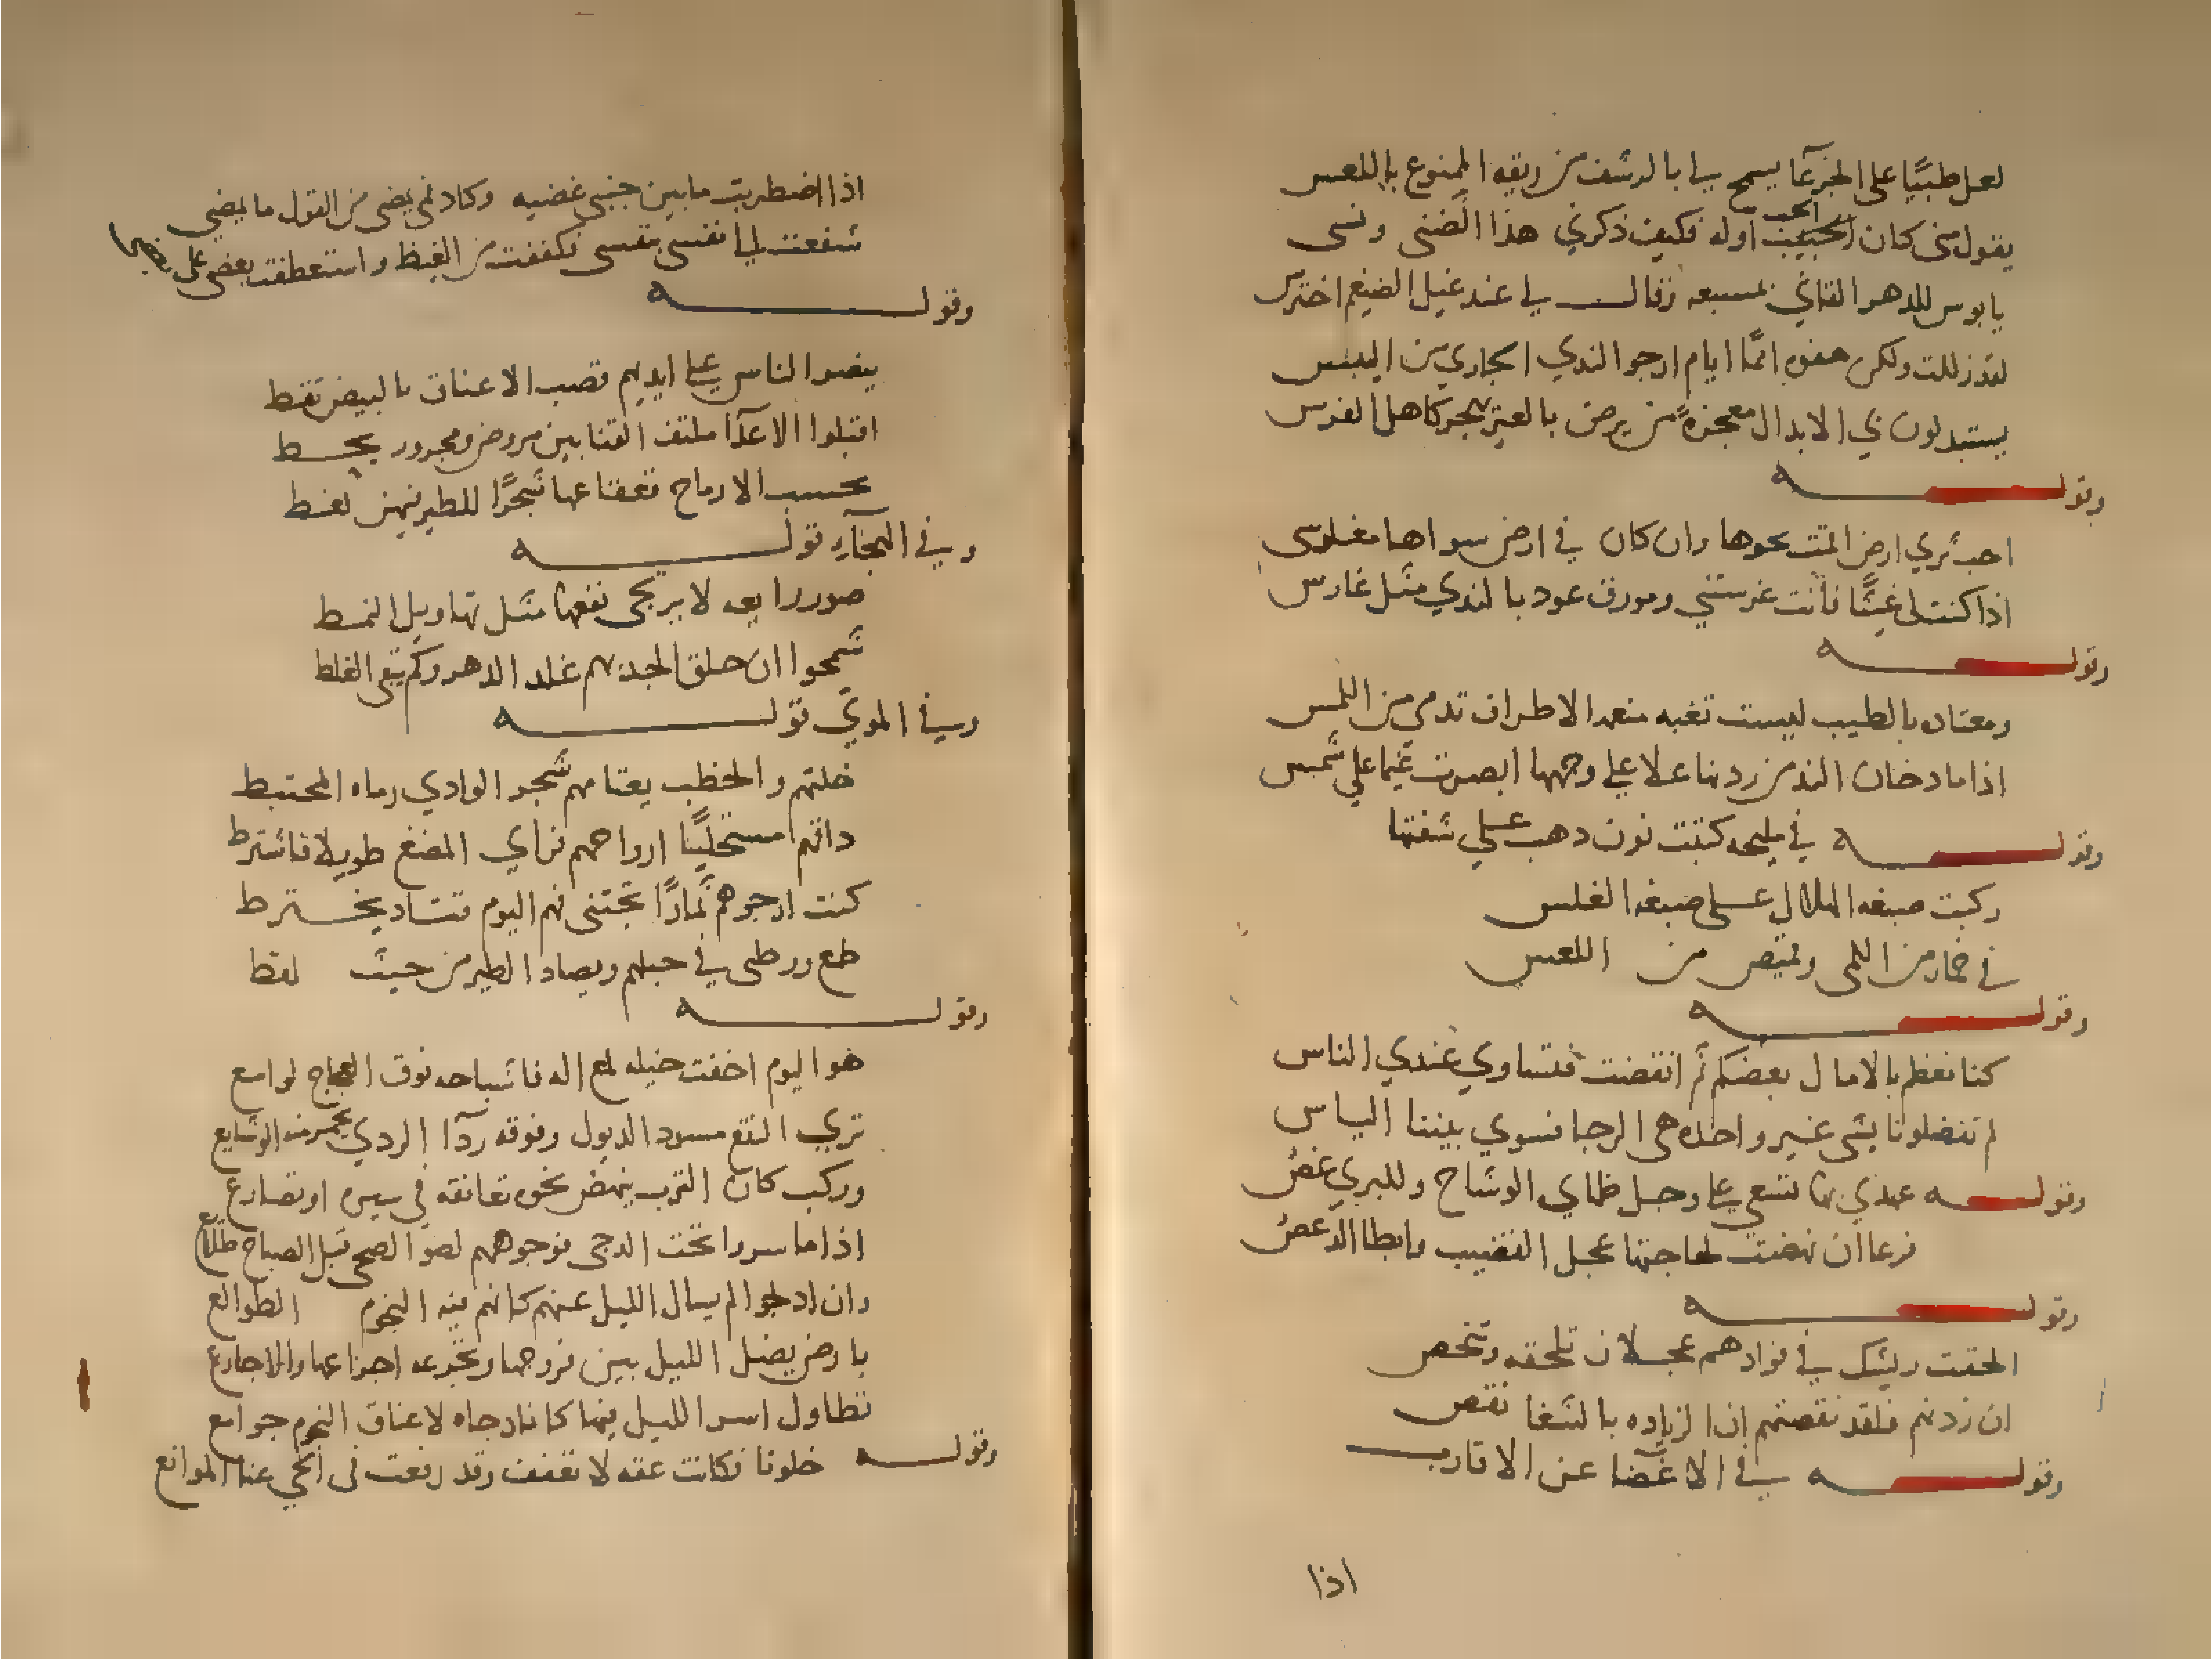 لعل طبيًا على الجرعا يسمح لي بالرشف من ريقه الممنوع باللعس
يقول من كان الحبيب اوله فكيف ذكري هذا الضنى ونسى
يا بوس للدهر القاني بمسبعه وقال لي عند غيل الضيغم اخترس
لقد زللت ولكن هفوه انما ايام ارجو الندي الجاري من اليبس
يستبدلون بي الابدال معجزة من يرض بالعير يهجر كاهل الفرس
وقوله
احب ثري ارض اقمت بحوها وان كان في ارض سواها مغارسى
اذا كنت لي غيثًا فانت غرستني ومورق عود بالندي مثل غارس
وقوله
ومعتاده بالطيب ليست تغبه منعمه الاطراف تدمي من اللمس
اذا ما دخان الند من ردنها علا على وجهها ابصرت غيما علي شمس
وقوله في مليحه كتبت نون دهب علي شفتها
ركبت صبغه الهلال على صبغه الغلس
في خمار من اللمى وقميص من اللعس
وقوله
كنا نعظم بالامال بعضكم ثم انقضت فتساوي عندي الناس
لم تفضلونا بشي غير واحده هي الرجا فسوي بيننا الياس
وقوله عهدي بها تسعي على وجل ظماي الوشاح وللبري غض
فرعا ان نهضت لحاجتها عجل القضيب وابطا الدعص
وقوله
الحقت ريشك في فوادهم عجلان تلحقه وتنحص
ان زدتهم فلقد نقصتهم ان الزياده بالشغا نقص
وقوله في الاغضا عن الاقارب
اذا
اذا اضطربت ما بين جنبي غضبه وكاد فمي يمضي من القول ما يمضي
شفعت الى نفسي بنفسي فكففت من الغيظ واستعطفت بعضي على بعضي
وقوله
ينصر الناس على ايديهم قصب الاعناق بالبيض تقط
اقبلوا الاعدا ملتف القنا بين مروض ومجرور يحط
بحسب الارماح تقعقاعها شجرًا للطير فيهن لغط
وفي الهجاء قوله
صور رايعه لا يرتجى نفعها مثل تهاويل النمط
شمخوا ان خلق الجد بهم غلد الدهر وكم يبقى الغلط
وفي الموتي قوله
خلتهم والخطب يعتامهم شجر الوادي رماه المختبط
داقهم مستحليًا ارواحهم فراي المضغ طويلا فاشترط
كنت ارجوهم ثمارًا تجتنى فهم اليوم قتاد يخترط
طمع ورطني في حبلهم ويصاد الطير من حيث لقط
وقوله
هو اليوم اخفت خيله لمع اله فاشباحه فوق العجاج لوامع
تري النقع مسود الديول وفوقه ردآ الردي يحمر منه الوشايع
وركب كان الترب ينهض نحوه تعانقه في سيره او تصارع
اذا ما سروا تحت الدجي فوجوههم لضو الصحى قبل الصباح طلايع
وان ادلجوا لم يسال الليل عنهم كانهم فيه النجوم الطوالع
بارض يضل الليل بين فروجها وتجرعه اجزاعها والاجارع
تطاول اسر الليل فيها كانما دجاه لاعناق النجوم جوامع
وقوله خلونا فكانت عفه لا تعفف وقد رفعت في الحي عنا الموانع